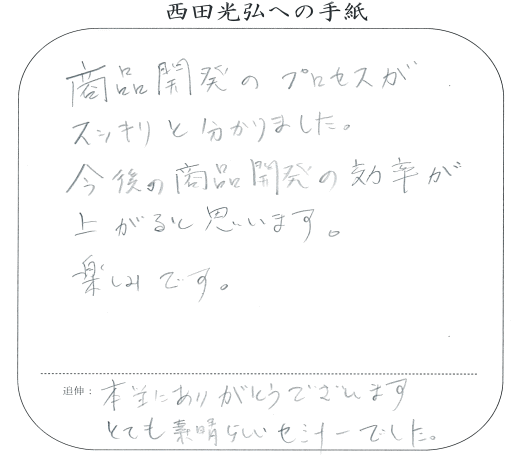 西田光弘への手紙
商品開発のプロセスが
スッキリと分かりました。
今後の商品開発の効率が
上がると思います。
楽しみです。
追伸：本当にありがとうございます
とても素晴らしいセミナーでした。